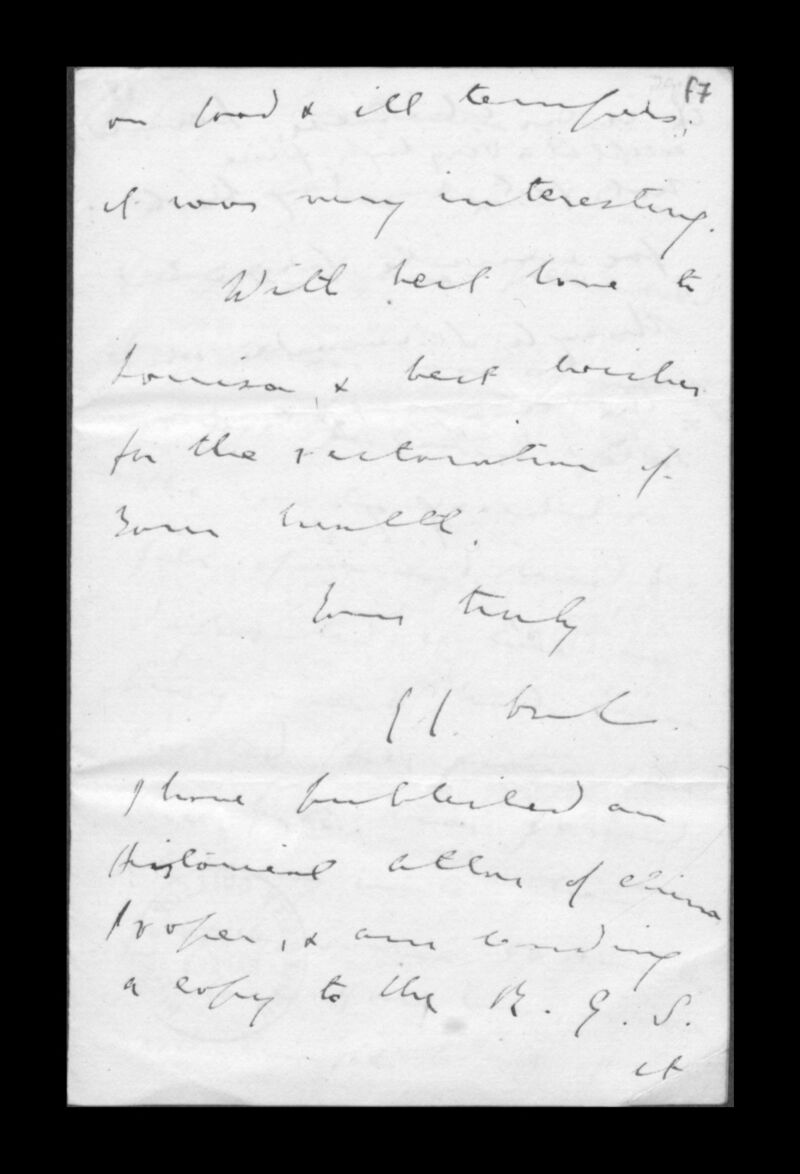 f7
on food & ill tempers,
it was very interesting.
With best love to
Louisa, & best wishes
for the restoration of
your health.
Yours truly
I have published an
Historical atlas of China
Proper, & am sending
a copy to the R. G. S.
it